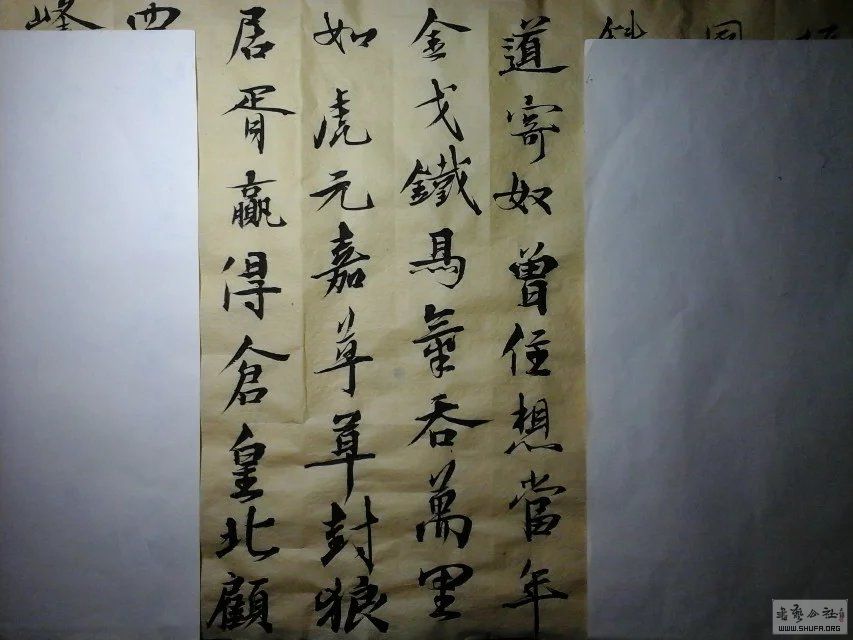 道寄奴曾住想當年
金戈鐵馬氣吞萬里
如虎元嘉草草封狼
居胥贏得倉皇北顧
西
峰
书艺公社
WWW.SHUFA.ORG